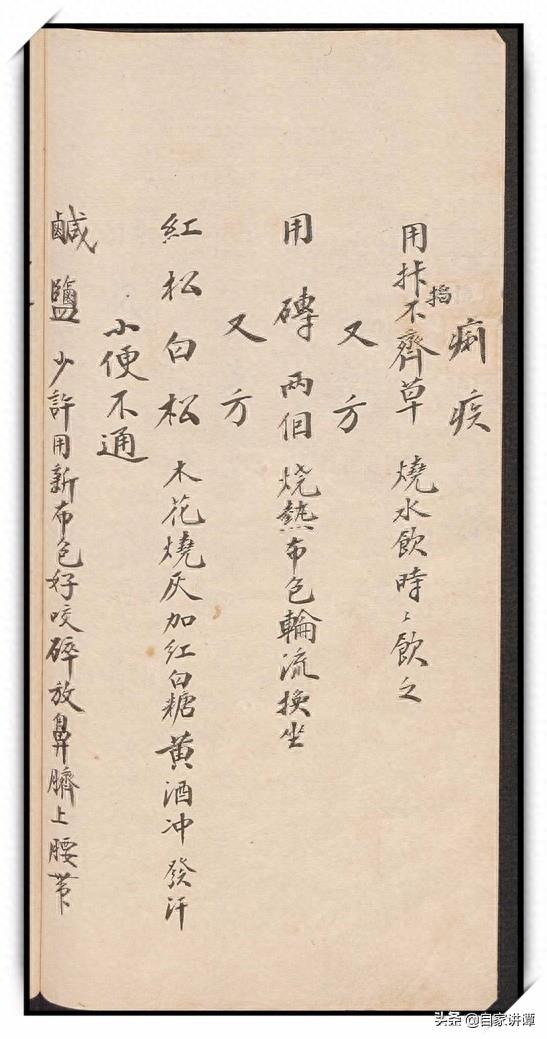 痢疾
用抃不齊草燒水飲時〻飲之
搗
又方
用磚兩個烧熱布色輪流换坐
又方
紅松白松木花燒灰加紅白糖黄酒冲發汗
小便不通
鹹鹽少許用新布色好咬碎放鼻臍上腰苇
头条 @自家讲谭